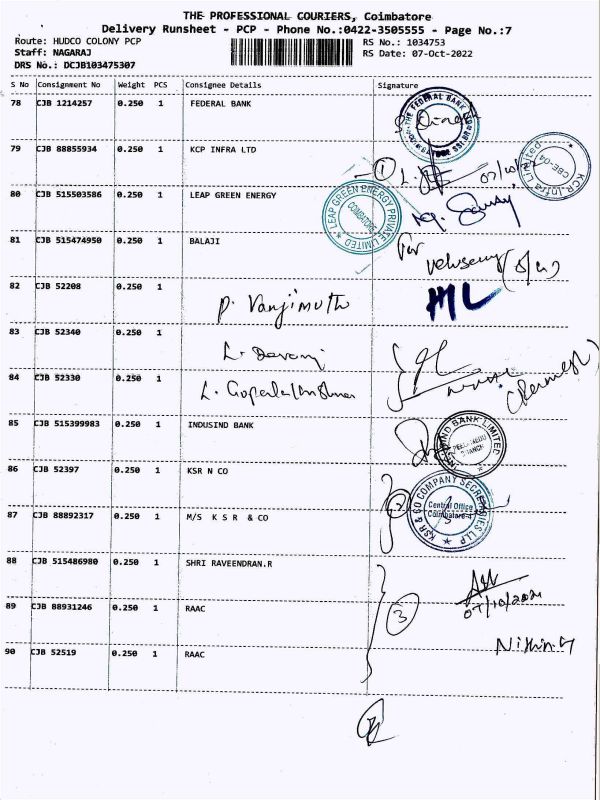 THE PROFESSIONAL COURIERS, Coimbatore
Delivery Runsheet - PCP - Phone No.:0422-3505555 - Page No.:7
Route: HUDCO COLONY PCP
RS No.: 1034753
Staff: NAGARAJ
RS Date: 07-Oct-2022
DRS No.: DCJB103475307
S No Consignment No Weight PCS Consignee Details Signature
78 CJB 1214257 0.250 1 FEDERAL BANK
THE FEDERAL BANK
79 CJB 88855934 0.250 1 KCP INFRA LTD
1
KCP-Infra Limited
CBE-04
80 CJB 515503586 0.250 1 LEAP GREEN ENERGY
LEAP GREEN ENERGY PRIVATE LIMITED
COIMBATORE
81 CJB 515474950 0.250 1 BALAJI
For
82 CJB 52208 0.250 1
P. Vanjimuth
83 CJB 52340 0.250 1
84 CJB 52330 0.250 1
L. Gopalakrishnan
85 CJB 515399983 0.250 1 INDUSIND BANK
INDUSIND BANK LIMITED
86 CJB 52397 0.250 1 KSR N CO
KSR & CO COMPANY SECRETARIES LLP
Central Office
Coimbatore-4
2
87 CJB 88892317 0.250 1 M/S K S R & CO
88 CJB 515486980 0.250 1 SHRI RAVEENDRAN.R
07/10/202
89 CJB 88931246 0.250 1 RAAC
3
90 CJB 52519 0.250 1 RAAC
Nithin.G